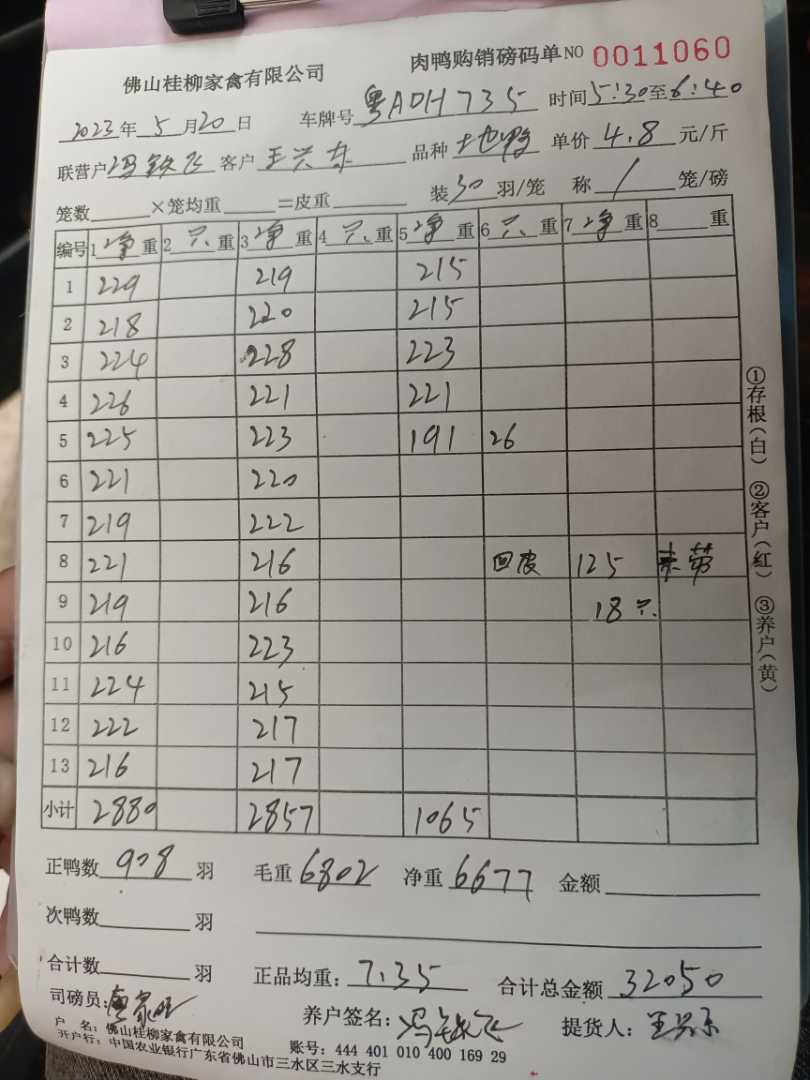 佛山桂柳家禽有限公司 肉鸭购销磅码单 NO 0011060
2023年5月20日 车牌号 粤ADH735 时间5:30至6:40
联营户冯铁飞 客户王兴东 品种土地鸭 单价4.8元/斤
笼数 ×笼均重 =皮重 装30羽/笼 称1笼/磅
编号 1净重 2只重 3净重 4只重 5净重 6只重 7净重 8重
1 229 219 215
2 218 220 215
3 224 228 223
4 226 221 221
5 225 223 191 26
6 221 220
7 219 222
8 221 216 回皮 125
9 219 216 18只
10 216 223
11 224 215
12 222 217
13 216 217
小计 2880 2857 1065
正鸭数908羽 毛重6802 净重6677 金额
次鸭数 羽
合计数 羽 正品均重:7.35 合计总金额32050
司磅员: 养户签名:冯铁飞 提货人:王兴东
户 名:佛山桂柳家禽有限公司 账号:444 401 010 400 169 29
开户行:中国农业银行广东省佛山市三水区三水支行
①存根(白) ②客户(红) ③养户(黄)